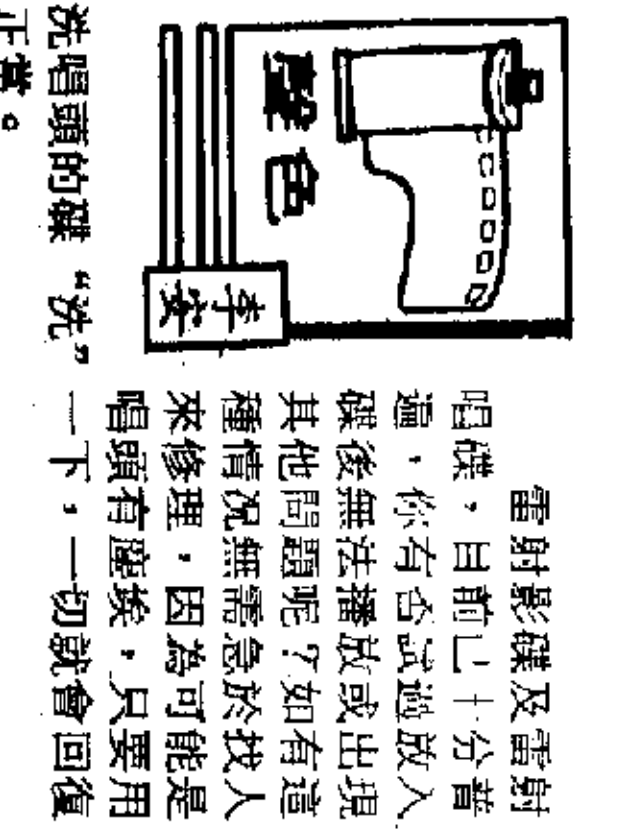 聲色
李安
雷射影碟及雷射
唱碟，目前已十分普
遍，你有否試過放入
碟後無法播放或出現
其他問題呢？如有這
種情況無需急於找人
來修理，因為可能是
唱頭有塵埃，只要用
洗唱頭的碟“洗”一下，一切就會回復
正常。